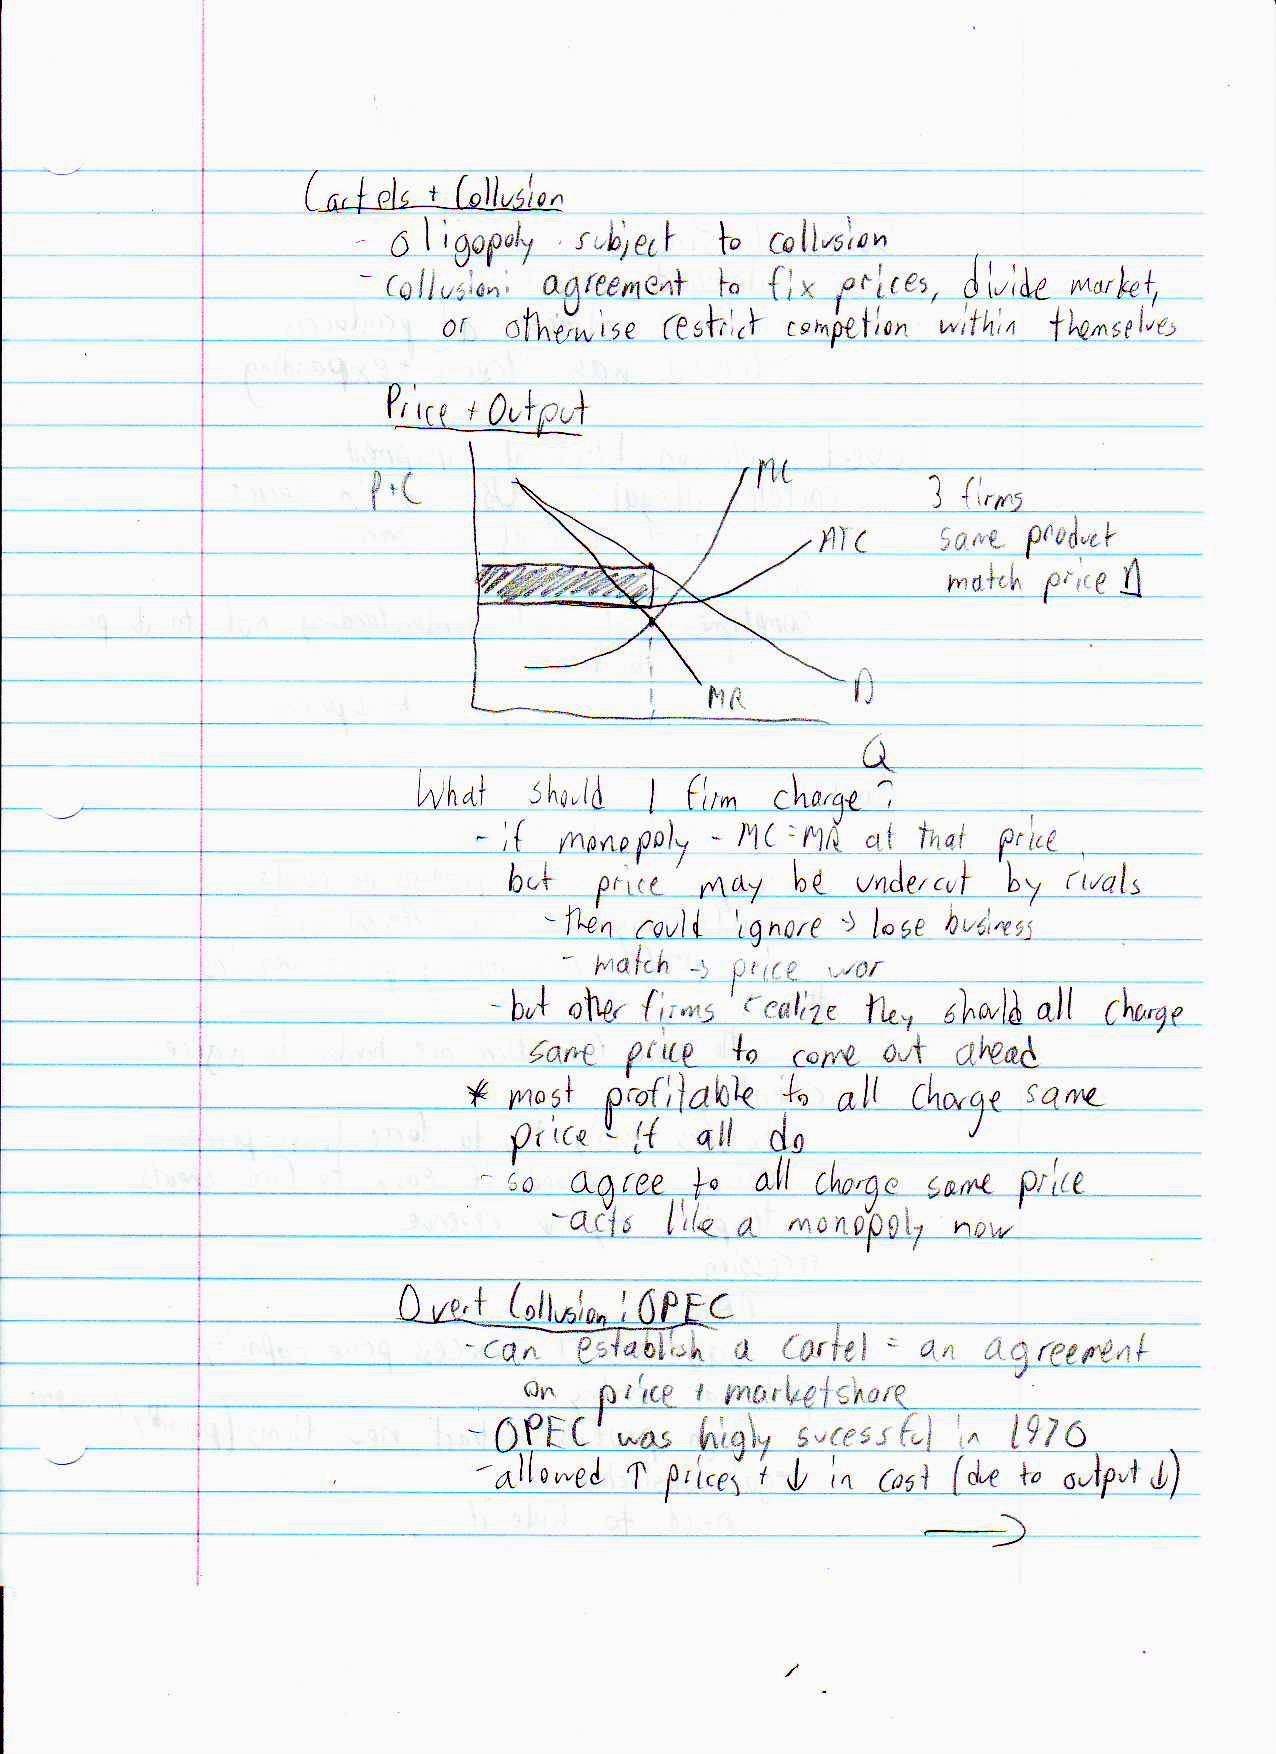 Cartels + Collusion
- oligopoly subject to collusion
- collusion: agreement to fix prices, divide market,
or otherwise restrict competion within themselves
Price + Output
P+C
MC
3 firms
ATC
same product
match price ↓
MR
D
Q
What should 1 firm charge?
- if monopoly - MC=MR at that price
but price may be undercut by rivals
- then could ignore → lose business
- match → price war
- but other firms realize they should all charge
same price to come out ahead
* most profitable to all charge same
price - if all do
- so agree to all charge same price
- acts like a monopoly now
Overt Collusion: OPEC
- can establish a cartel = an agreement
on price + marketshare
- OPEC was higly sucessful in 1970
- allowed ↑ prices + ↓ in cost (due to output ↓)
→